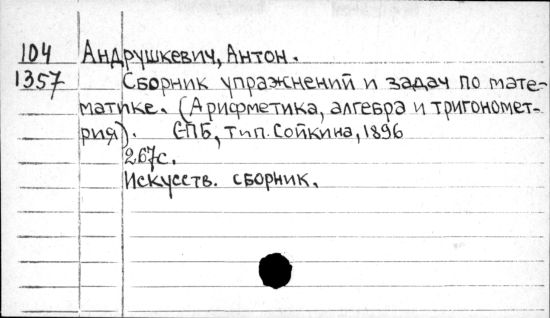 104 Андрушкевич, Антон.
1357 Сборник упражнений и задач по мате-
матике. (Арифметика, алгебра и тригономет-
рия). СПБ, тип. Сойкина, 1896
267с.
Искусств. сборник.